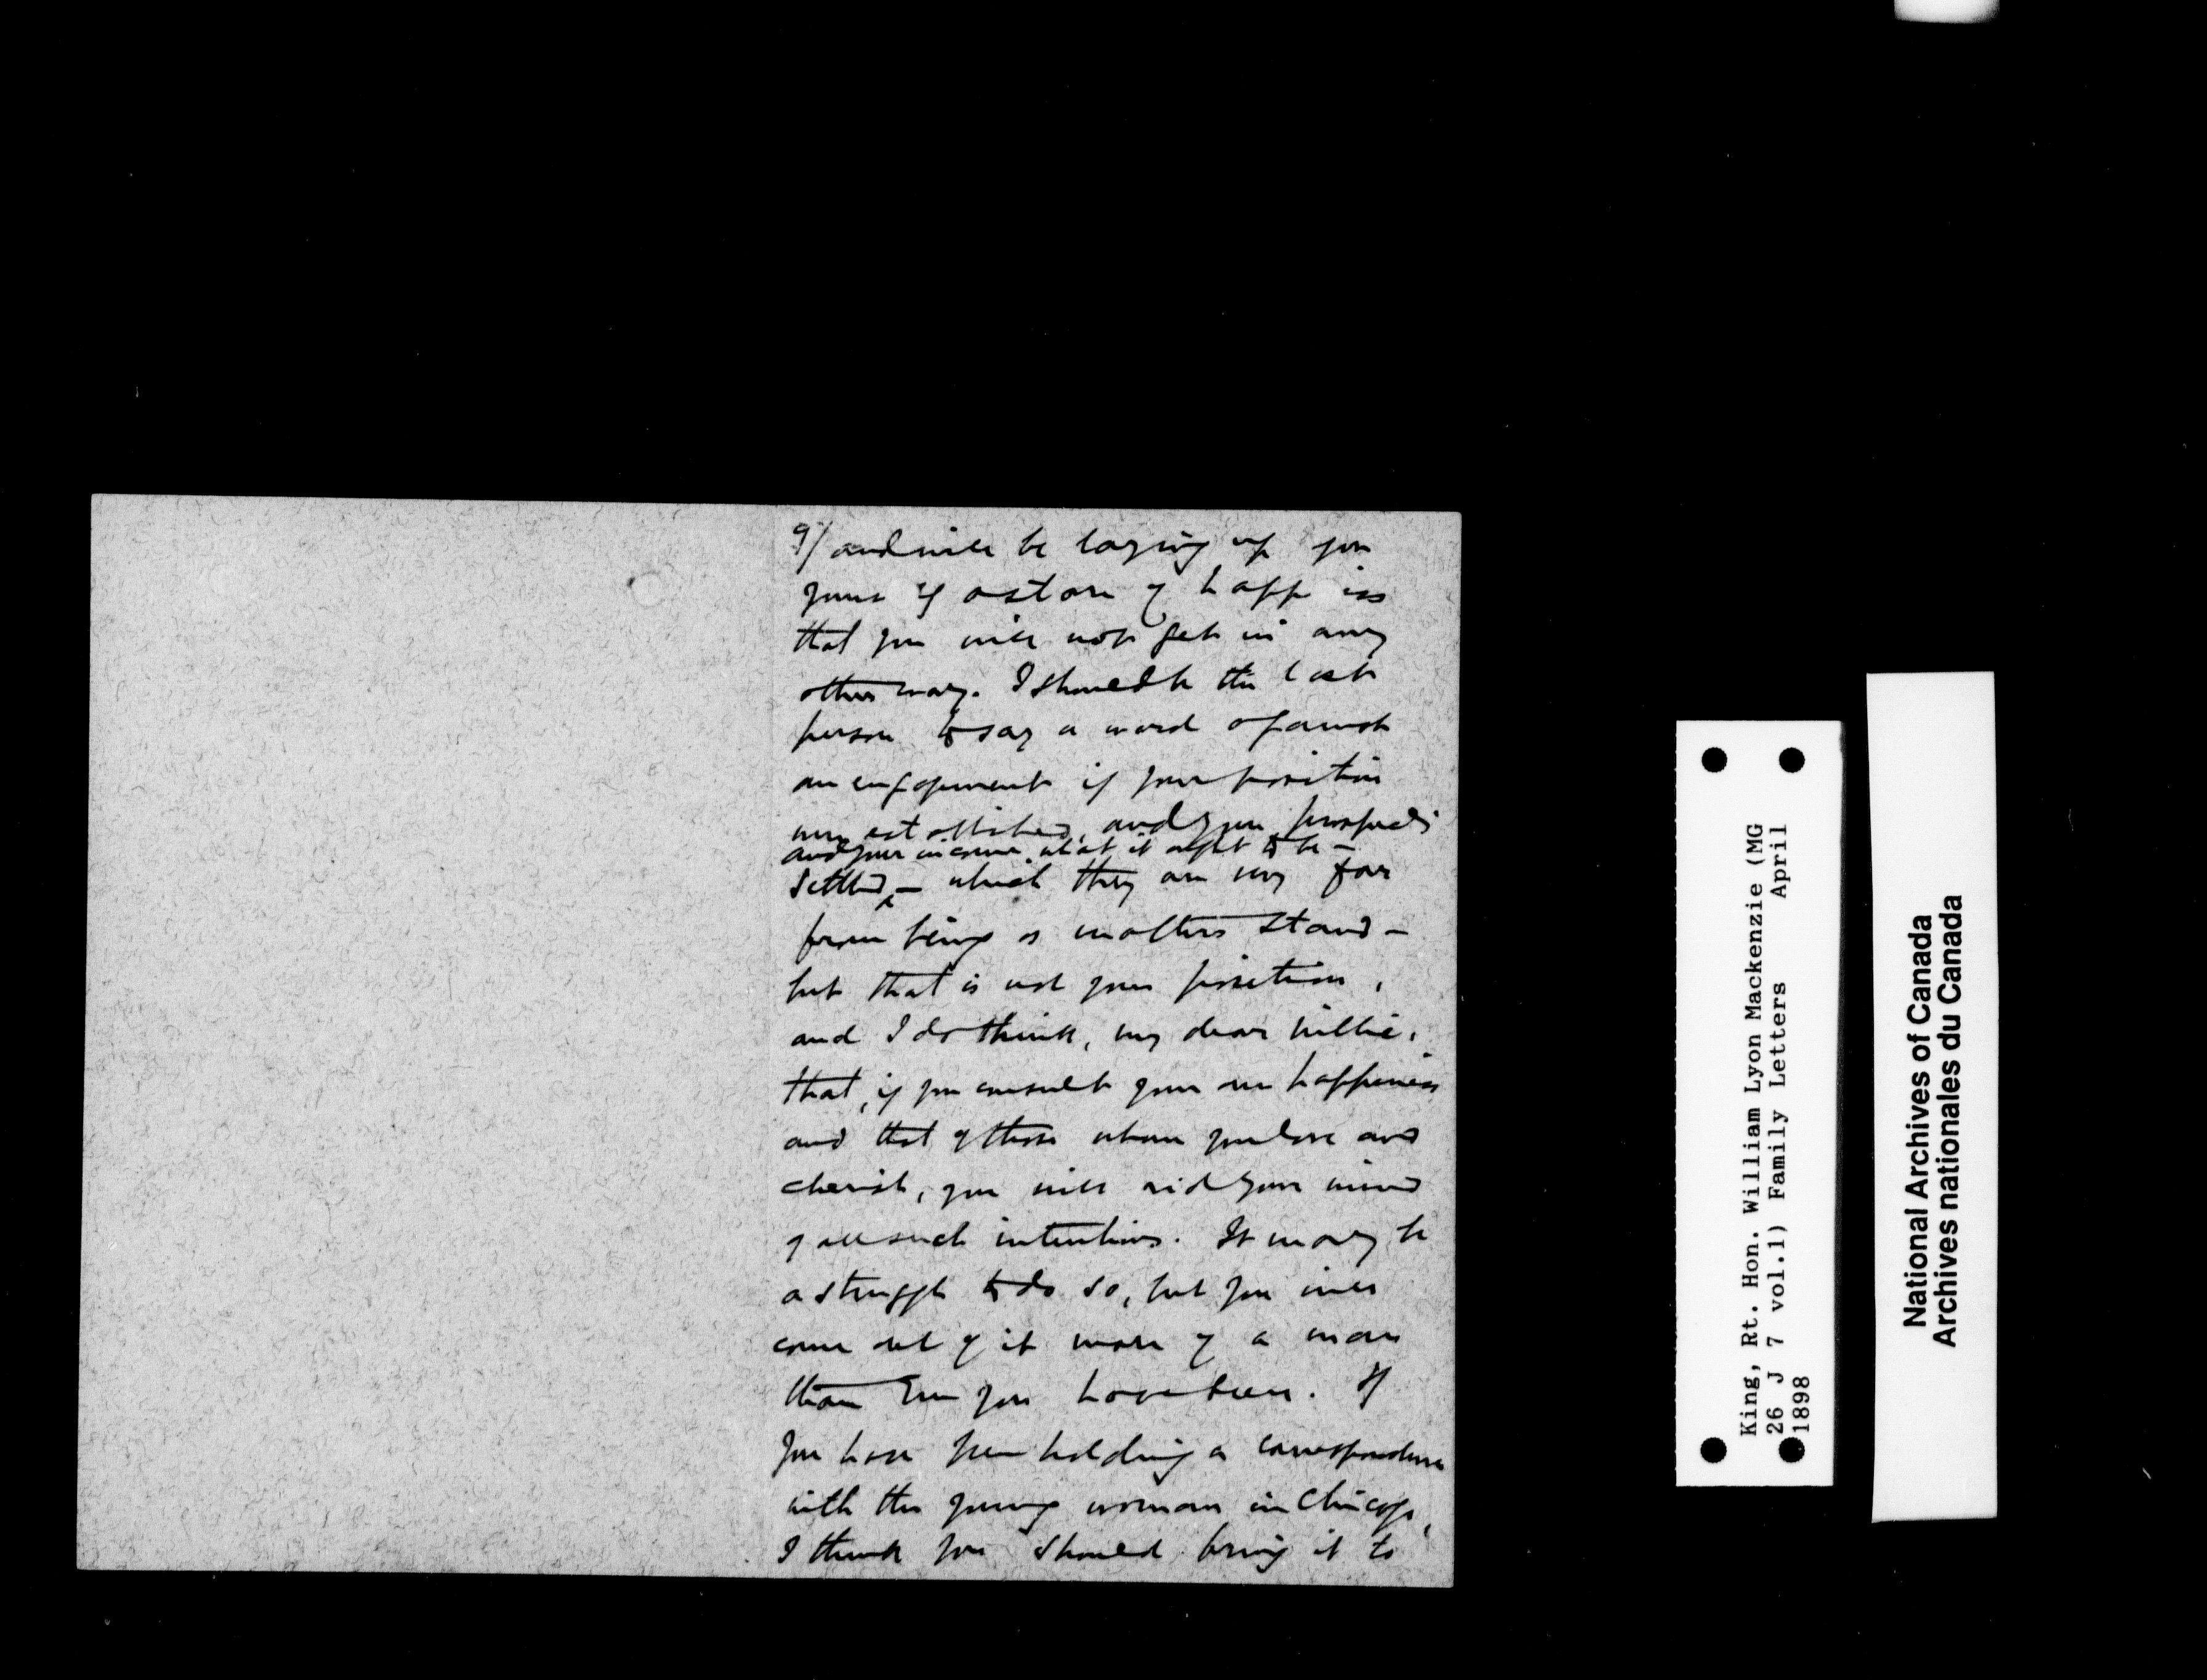 9/ and will be laying up for
years of a store of happiness
that you will not get in any
other way. I should be the last
person to say a word against
an engagement if your position
were established, and your prospects
and your income what it ought to be -
settled, - which they are very far
from being as matters stand -
but that is not your position,
and I do think, my dear Willie,
that, if you consult your own happiness
and that of those whom you love and
cherish, you will rid your mind
of all such intentions. It may be
a struggle to do so, but you will
come out of it more of a man
than ever you have been. If
you have been holding a correspondence
with the young woman in Chicago,
I think you should bring it to
King, Rt. Hon. William Lyon Mackenzie (MG
26 J 7 vol.1) Family Letters April
1898
National Archives of Canada
Archives nationales du Canada